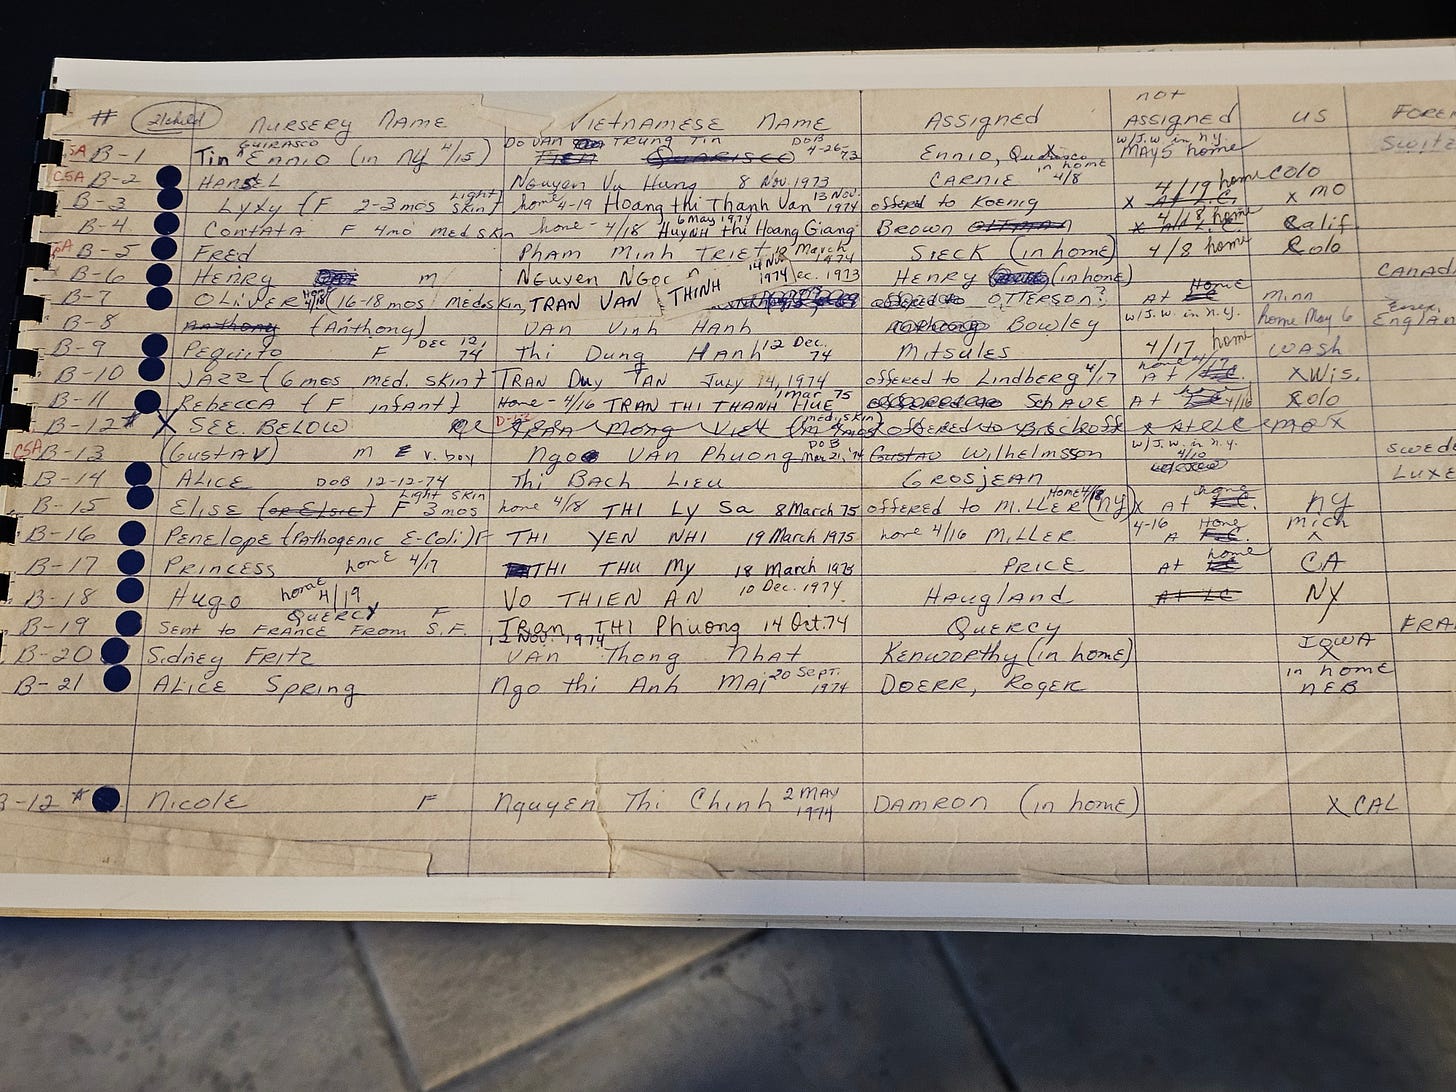 # 21 child NURSERY NAME VIETNAMESE NAME Assigned not Assigned US FOREI
B-1 Tin GUIRASCO ENNIO (in NY 4/15) DO VAN TRUNG Tin DOB 4-26-73 ENNIO, in home w/J.W. in n.y. MAY5 home Switz
CSA B-2 HANSEL Nguyen Vu Hung 8 Nov. 1973 CARNIE 4/8 4/19 home COLO
B-3 LYXY (F 2-3 mos Light skin) home 4-19 Hoang thi Thanh Van 13 Nov. 1974 offered to Koenig X At L.C. X mo
B-4 CONTATA F 4mo med skin home - 4/18 HUYNH thi Hoang Giang 6 May 1974 Brown 4/18 home Calif
B-5 FRED PHAM MINH TRIET March 1974 SIECK (in home) 4/8 home Colo
B-6 HENRY m NGUYEN NGOC Dec. 1973 HENRY (in home) CANAD
B-7 OLIVER (16-18 mos med skin, TRAN VAN THINH 1974 offered to OTTERSON? At Home Minn
B-8 Anthony (Anthony) VAN Vinh HANH Bowley w/J.W. in n.y. home May 6 England
B-9 Pequito F DEC 12, 74 Thi Dung HANH 12 Dec. 74 Mitsules 4/17 home WASH
B-10 JAZZ (6 mos med. skin) TRAN Duy TAN July 14, 1974 offered to Lindberg 4/17 home 4/17 At X Wis.
B-11 REBECCA (F infant) Home - 4/16 TRAN THI THANH HUE 1 Mar 75 SCHAUE At 4/16 Colo
B-12* X SEE BELOW TRAN Mong Viet (med. skin) offered to Bischoff X At LC mo X
CSA B-13 (GUSTAV) m v. boy Ngo VAN Phuong DOB Mar 21, '74 Gustav Wilhelmsson w/J.W. in n.y. 4/10 SWEDE
B-14 ALICE DOB 12-12-74 Thi BACH LIEU GROSJEAN LUXE
B-15 ELISE (or Elsie) F 3 mos Light skin home 4/18 THI LY SA 8 March 75 offered to MILLER (NY) HOME 4/18 X At home NY
B-16 PENELOPE (Pathogenic E-Coli) F THI YEN NHI 19 March 1975 home 4/16 MILLER 4-16 A Home mich X
B-17 PRINCESS home 4/17 THI THU My 18 March 1975 PRICE At home CA
B-18 HUGO home 4/19 VO THIEN AN 10 Dec. 1974 HAUGLAND At LC NY
B-19 QUERCY F SENT to FRANCE FROM S.F. TRAN THI Phuong 14 Oct. 74 QUERCY FRA
B-20 Sidney Fritz VAN Thong Nhat 12 Nov. 1974 KENWORTHY (in home) IOWA X
B-21 ALICE Spring Ngo thi Anh MAI 20 Sept. 1974 DOERR, ROGER in home NEB
B-12 * NICOLE F Nguyen Thi Chinh 2 MAY 1974 DAMRON (in home) X CAL